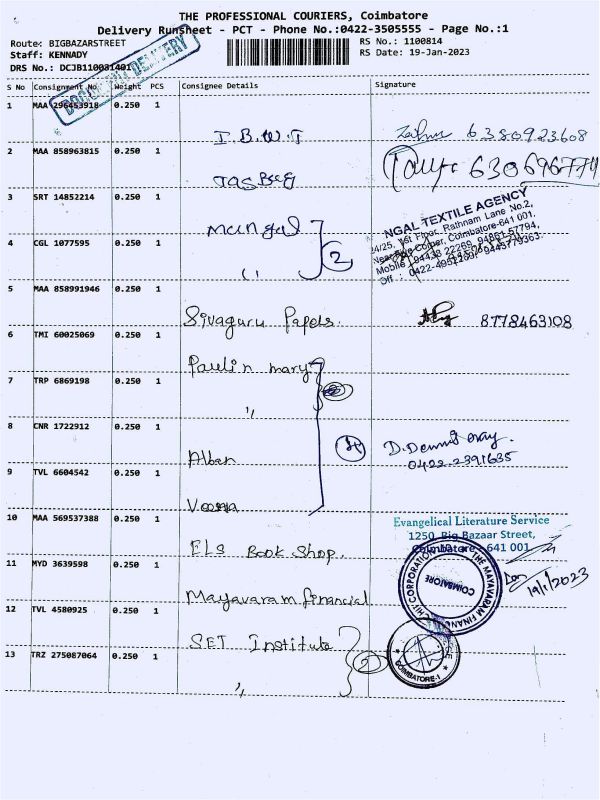 THE PROFESSIONAL COURIERS, Coimbatore
Delivery Runsheet - PCT - Phone No.:0422-3505555 - Page No.:1
Route: BIGBAZARSTREET
Staff: KENNADY
DRS No.: DCJB110081401
RS No.: 1100814
RS Date: 19-Jan-2023
DOCUMENT DELIVERY
S No Consignment No. Weight PCS Consignee Details Signature
1 MAA 296453918 0.250 1 I.B.W.T 6380923608
2 MAA 858963815 0.250 1 630696774
3 SRT 14852214 0.250 1 Mangal
NGAL TEXTILE AGENCY
24/25, 1st Floor, Rathnam Lane No.2,
Coimbatore-641 001.
Mobile : 94438 22269, 94861 57794,
Off : 0422-4951289, 9445779363.
4 CGL 1077595 0.250 1 " 2
5 MAA 858991946 0.250 1 Sivaguru Papers. 8778463108
6 TMI 60025069 0.250 1 Paulin mary
7 TRP 6869198 0.250 1 "
8 CNR 1722912 0.250 1 Alben 4 D.
0422-2391635
9 TVL 6604542 0.250 1
10 MAA 569537388 0.250 1 ELS Book Shop.
Evangelical Literature Service
1250, Big Bazaar Street,
Coimbatore - 641 001
11 MYD 3639598 0.250 1 Mayavaram financial
THE MAYAVARAM FINANCIAL CHIT CORPORATION
COIMBATORE
19/1/2023
12 TVL 4580925 0.250 1 SET Institute 2
13 TRZ 275087064 0.250 1 "
COIMBATORE-1